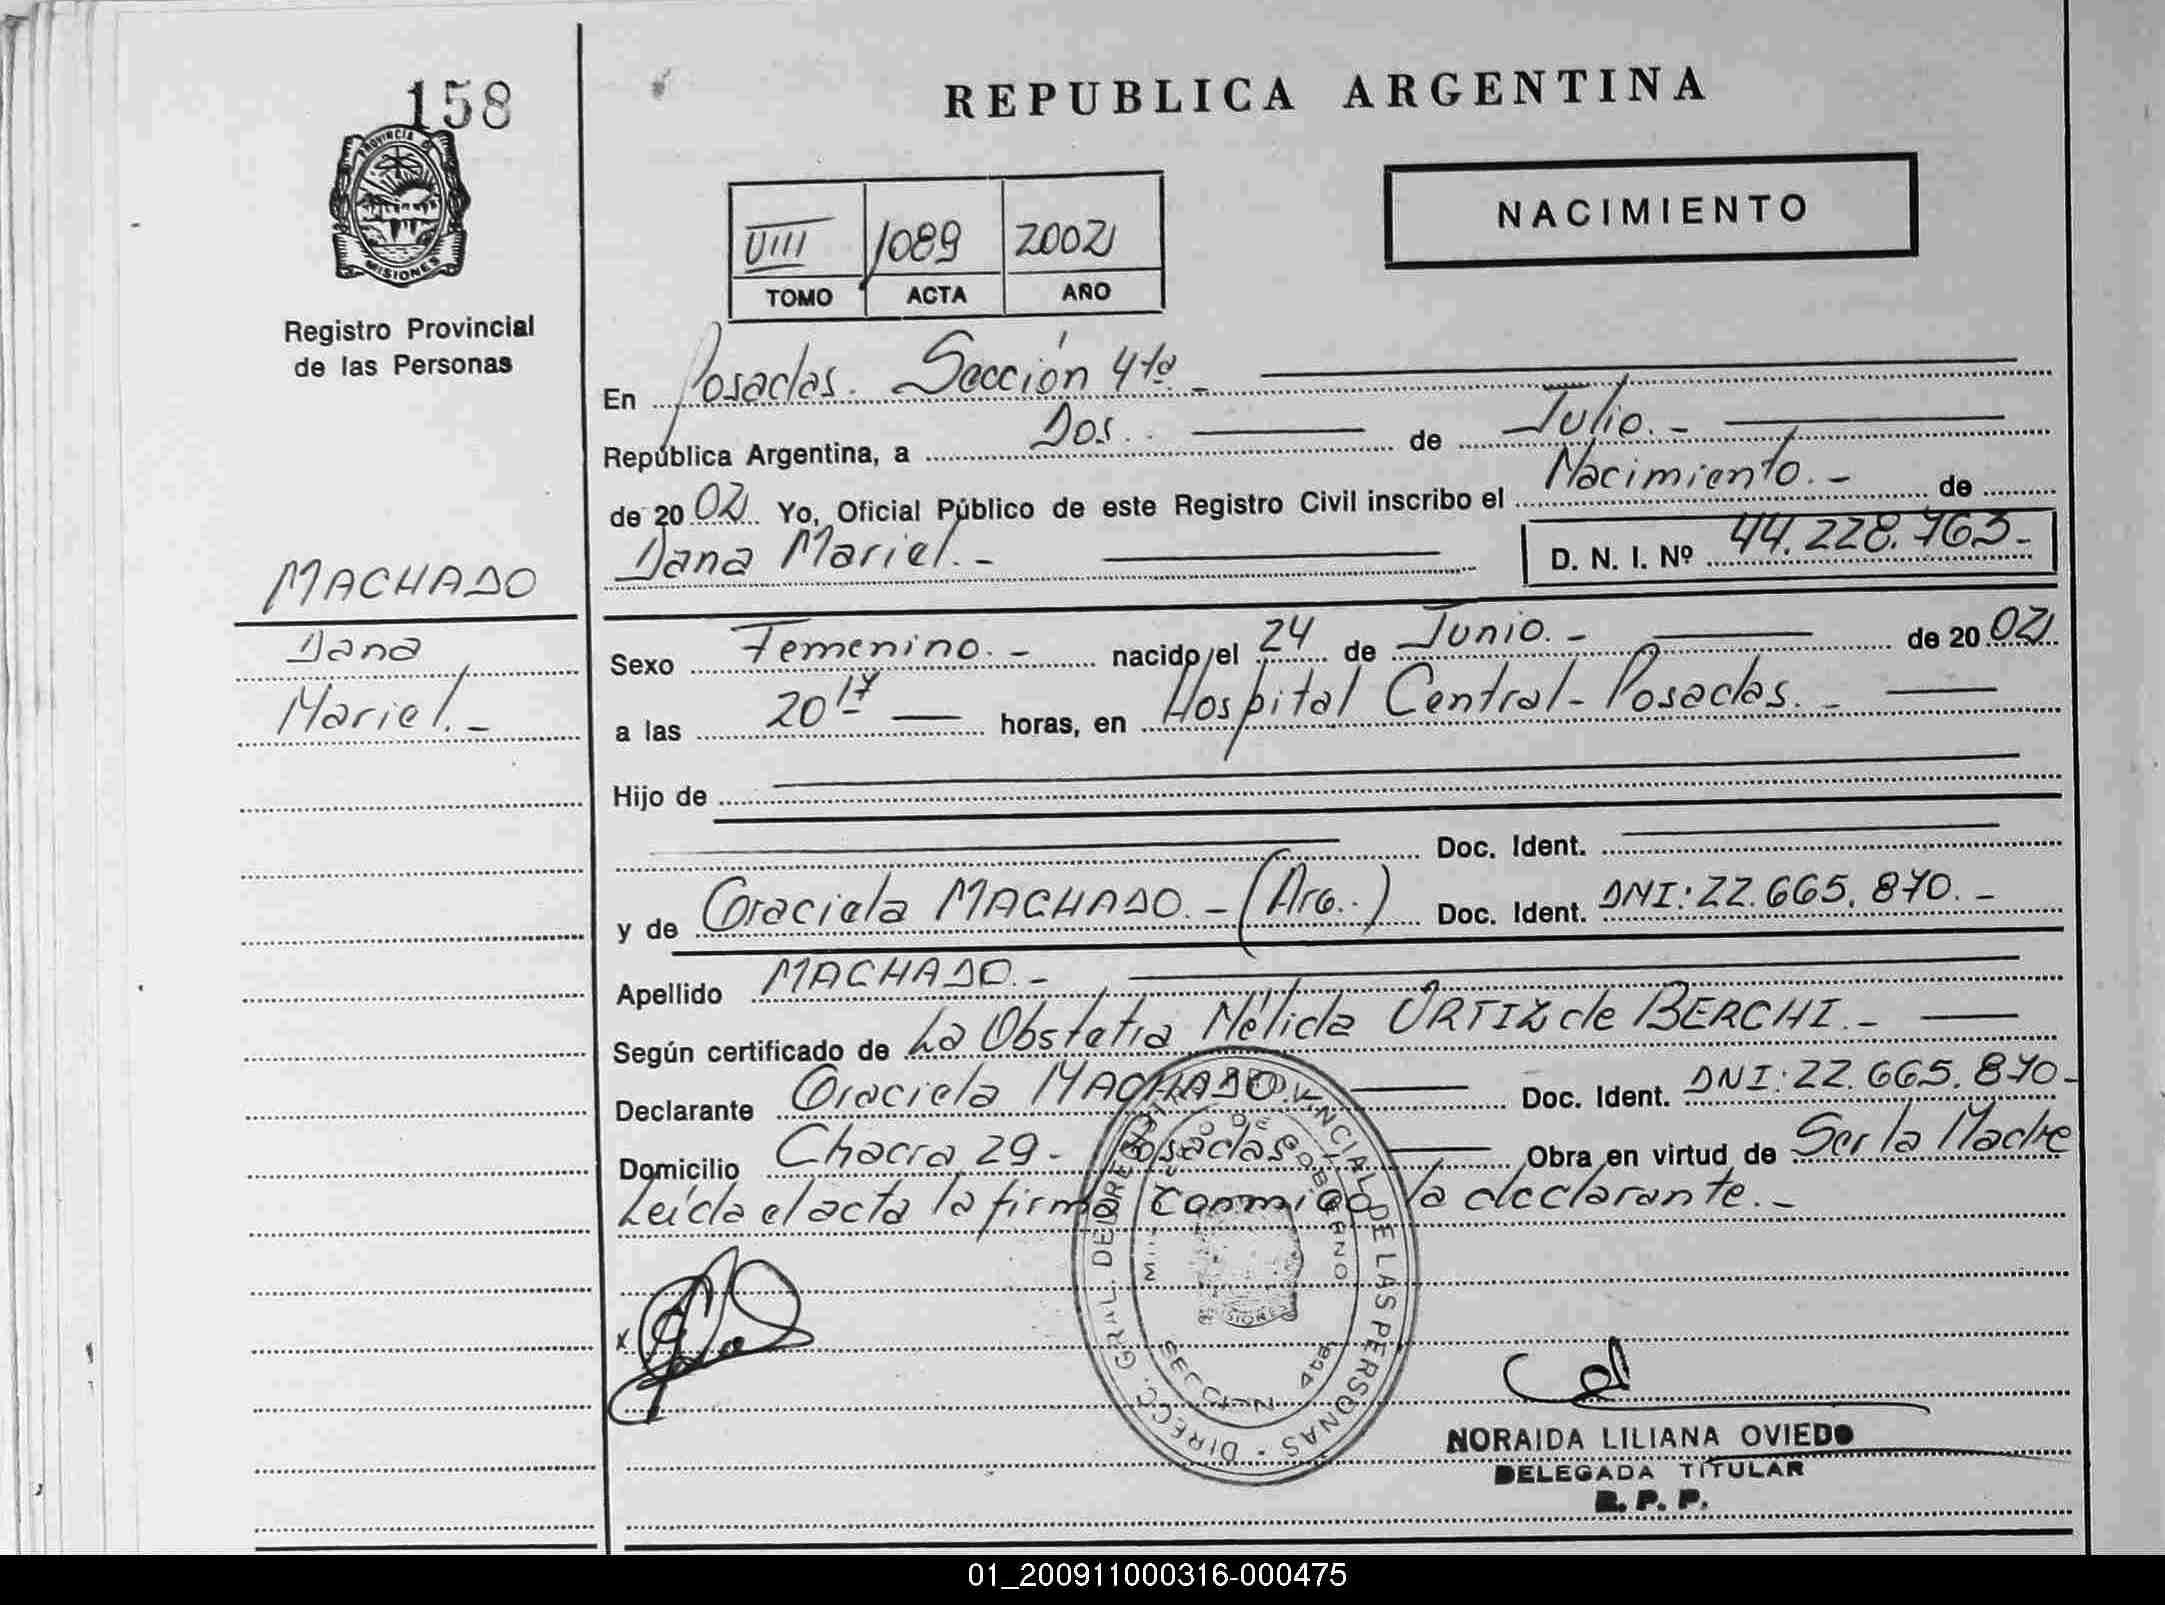 158
REPUBLICA ARGENTINA
PROVINCIA DE
MISIONES
NACIMIENTO
VIII 1089 2002
TOMO ACTA AÑO
Registro Provincial
de las Personas
En Posadas. Sección 4ta -
República Argentina, a Dos. de Julio. -
de 2002. Yo, Oficial Público de este Registro Civil inscribo el Nacimiento. - de
Dana Mariel. - D. N. I. Nº 44.228.763-
MACHADO
Dana
Mariel. -
Sexo Femenino. - nacido el 24 de Junio. - de 2002
a las 20 17 horas, en Hospital Central - Posadas. -
Hijo de
Doc. Ident.
y de Graciela MACHADO. - (Arg..) Doc. Ident. DNI: 22.665.870. -
Apellido MACHADO. -
Según certificado de La Obstetra Nélida ORTIZ de BERCHI. -
Declarante Graciela MACHADO. Doc. Ident. DNI: 22.665.870-
Domicilio Chacra 29 - Posadas Obra en virtud de Ser la Madre
Leída el acta la firma conmigo la declarante. -
DIRECC. GRAL. DEL REG. PROVINCIAL DE LAS PERSONAS -
SECCION 4ta
x
NORAIDA LILIANA OVIEDO
DELEGADA TITULAR
R. P. P.
01_200911000316-000475